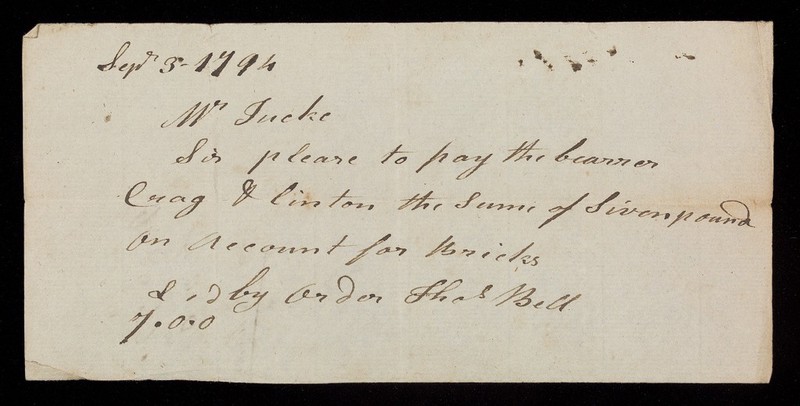 Sepr 3-1794
Mr Tucke
Sir please to pay the bearrer
Crag & Clinton the Sume of Sivenpound
on Account for Bricks
£ s d by Order Thos Bell
7.0.0